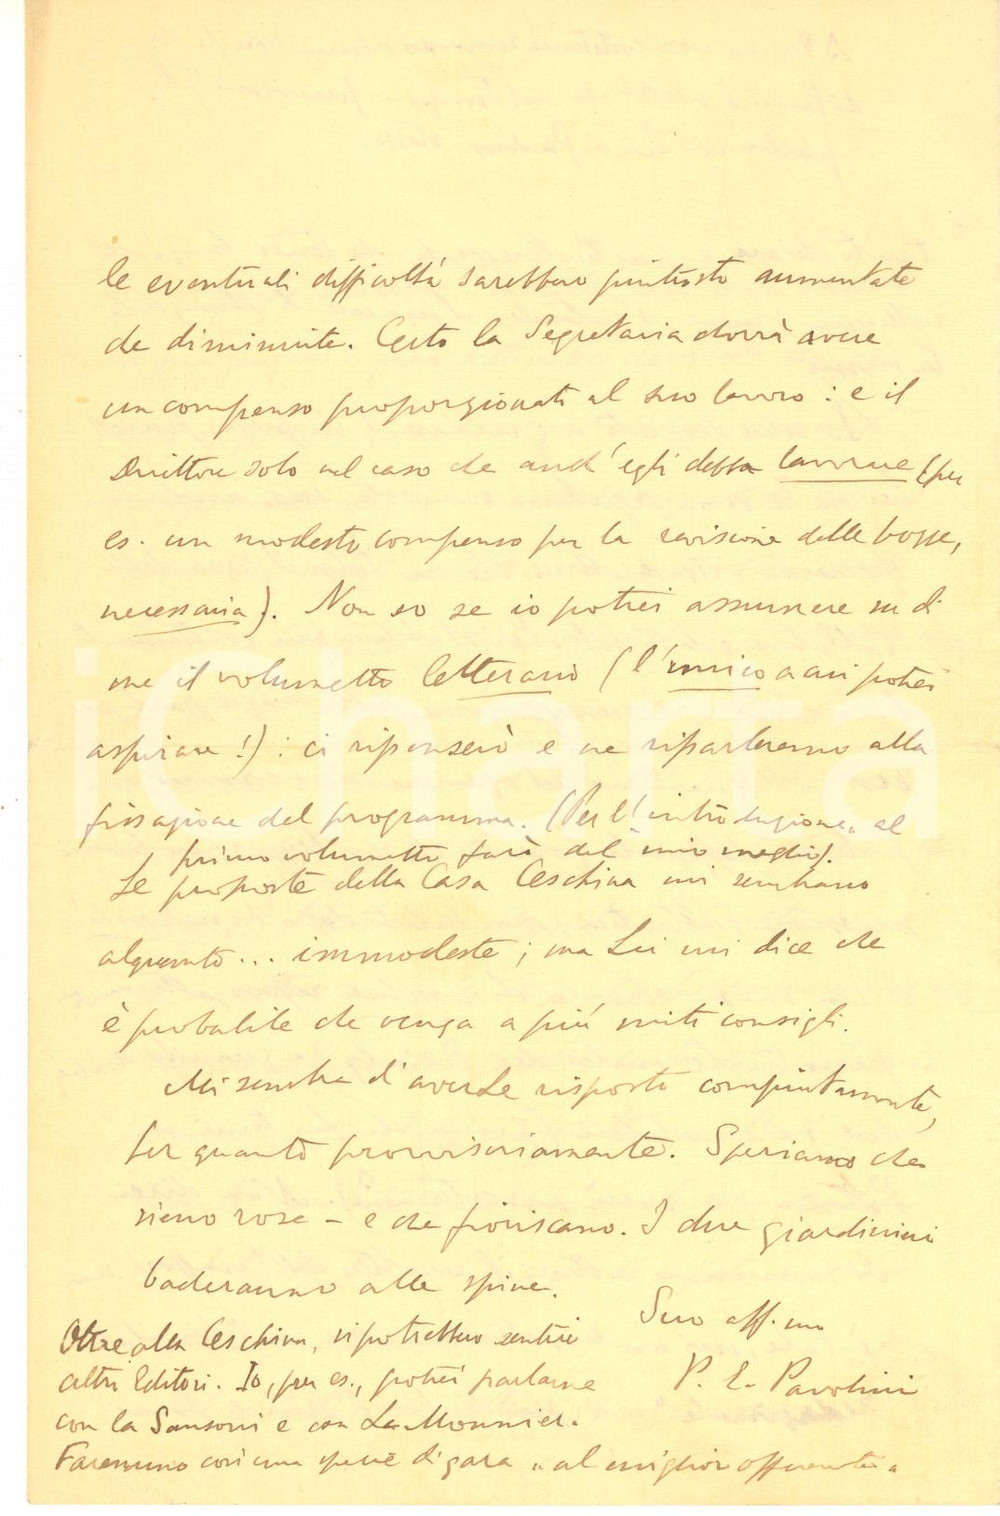 le eventuali difficoltà sarebbero piuttosto aumentate
che diminuite. Certo la Segretaria dovrà avere
un compenso proporzionato al suo lavoro : e il
Direttore solo nel caso che anch'egli debba lavorare (per
es. un modesto compenso per la revisione delle bozze,
necessaria). Non so se io potrei assumere su di
me il volumetto letterario (l'unico a cui potrei
aspirare!) : ci ripenserò e ne riparleremo alla
fissazione del programma. (Per l'introduzione al
primo volumetto farò del mio meglio).
Le proposte della Casa Ceschina mi sembrano
alquanto... immodeste ; ma Lei mi dice che
è probabile che venga a più miti consigli.
Mi sembra d'averLe risposto compiutamente,
per quanto provvisoriamente. Speriamo che
sieno rose – e che fioriscano. I due giardinieri
baderanno alle spine.
Suo aff.mo
P. E. Pavolini
Oltre alla Ceschina, si potrebbero sentire
altri Editori. Io, per es., potrei parlarne
con la Sansoni e con Le Monnier.
Faremmo così una specie di gara "al miglior offerente"
iCharta